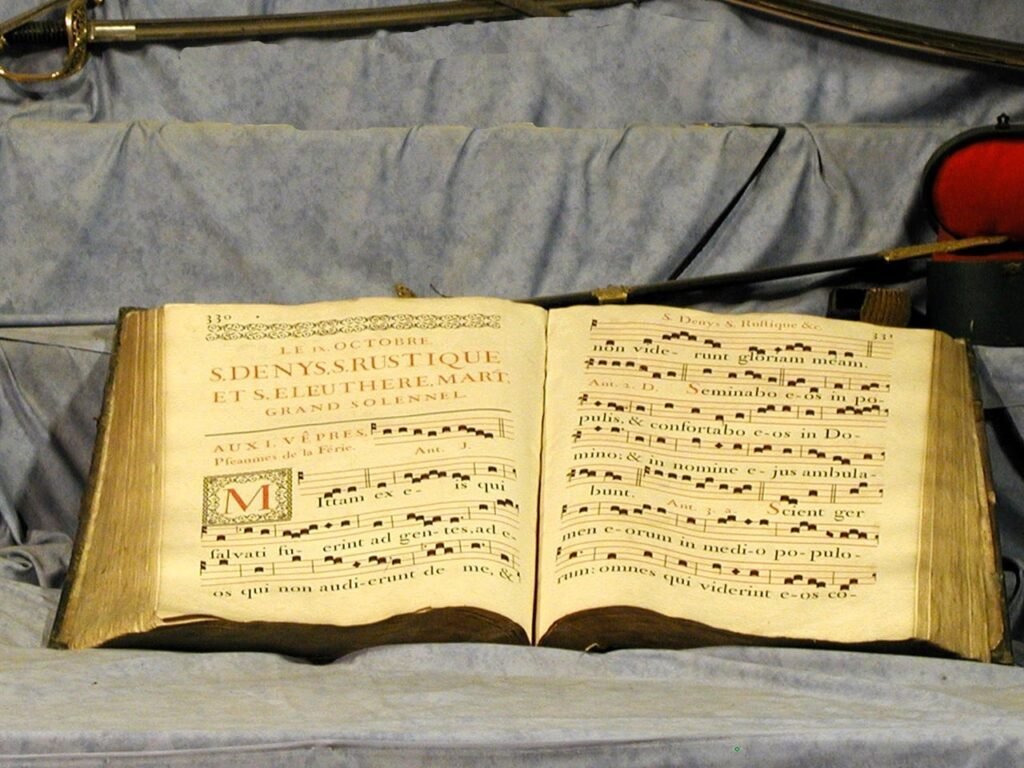 330
LE IX. OCTOBRE.
S. DENYS, S. RUSTIQUE
ET S. ELEUTHERE, MART.
GRAND SOLENNEL.
AUX I. VÊPRES,
Pseaumes de la Férie. Ant. 1.
MIttam ex e- is qui
salvati fu- erint ad gen-tes, ad e-
os qui non audi-erunt de me, &
S. Denys S. Rustique &c. 331
non vide- runt gloriam meam.
Ant. 2. D. Seminabo e-os in po-
pulis, & confortabo e-os in Do-
mino: & in nomine e- jus ambula-
bunt. Ant. 3. a. Scient ger
men e-orum in medi-o po-pulo-
rum: omnes qui viderint e-os co-